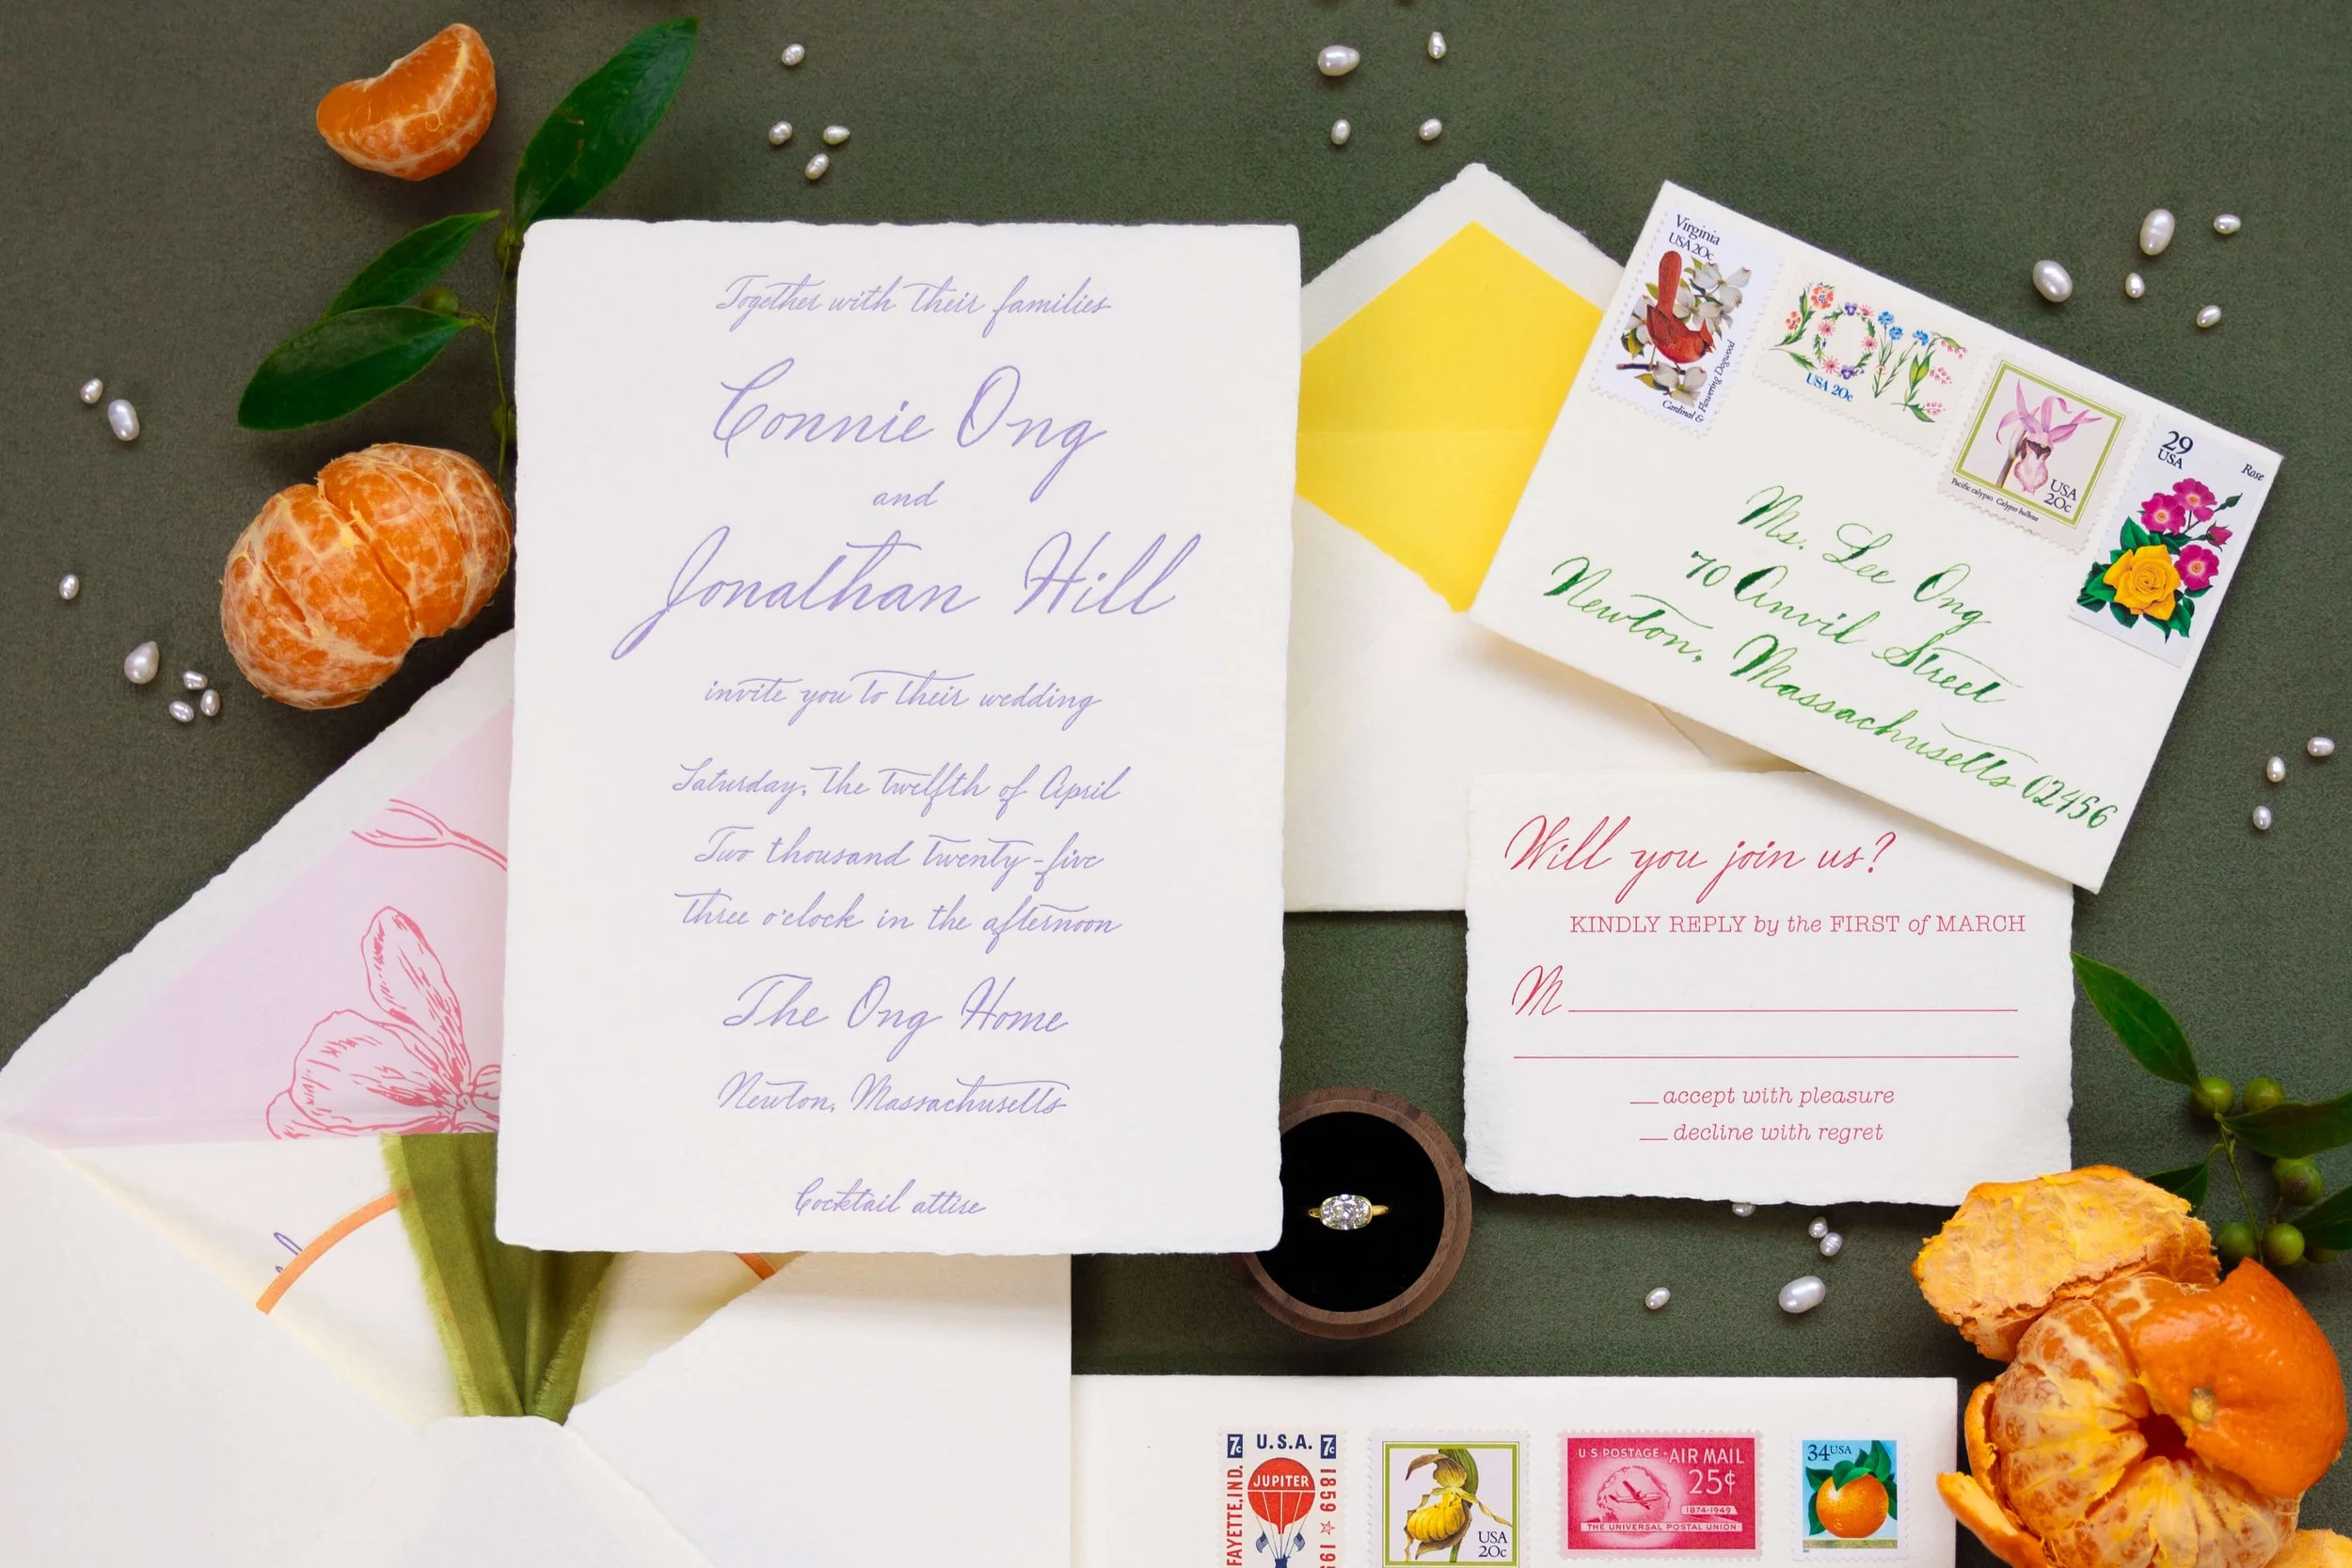 Together with their families
Connie Ong
and
Jonathan Hill
invite you to their wedding
Saturday, the twelfth of April
Two thousand twenty-five
three o'clock in the afternoon
The Ong Home
Newton, Massachusetts
Cocktail attire
Virginia
USA 20c
Cardinal & Flowering Dogwood
LOVE
USA 20c
USA
20c
Pacific calypso Calypso bulbosa
29
USA
Rose
Ms. Lee Ong
70 Anvil Street
Newton, Massachusetts 02456
Will you join us?
KINDLY REPLY by the FIRST of MARCH
M
accept with pleasure
decline with regret
7c U.S.A. 7c
JUPITER
FAYETTE, IND.
1859 ☆ 19
USA
20c
U·S·POSTAGE·AIR MAIL
25¢
1874-1949
THE UNIVERSAL POSTAL UNION
34USA